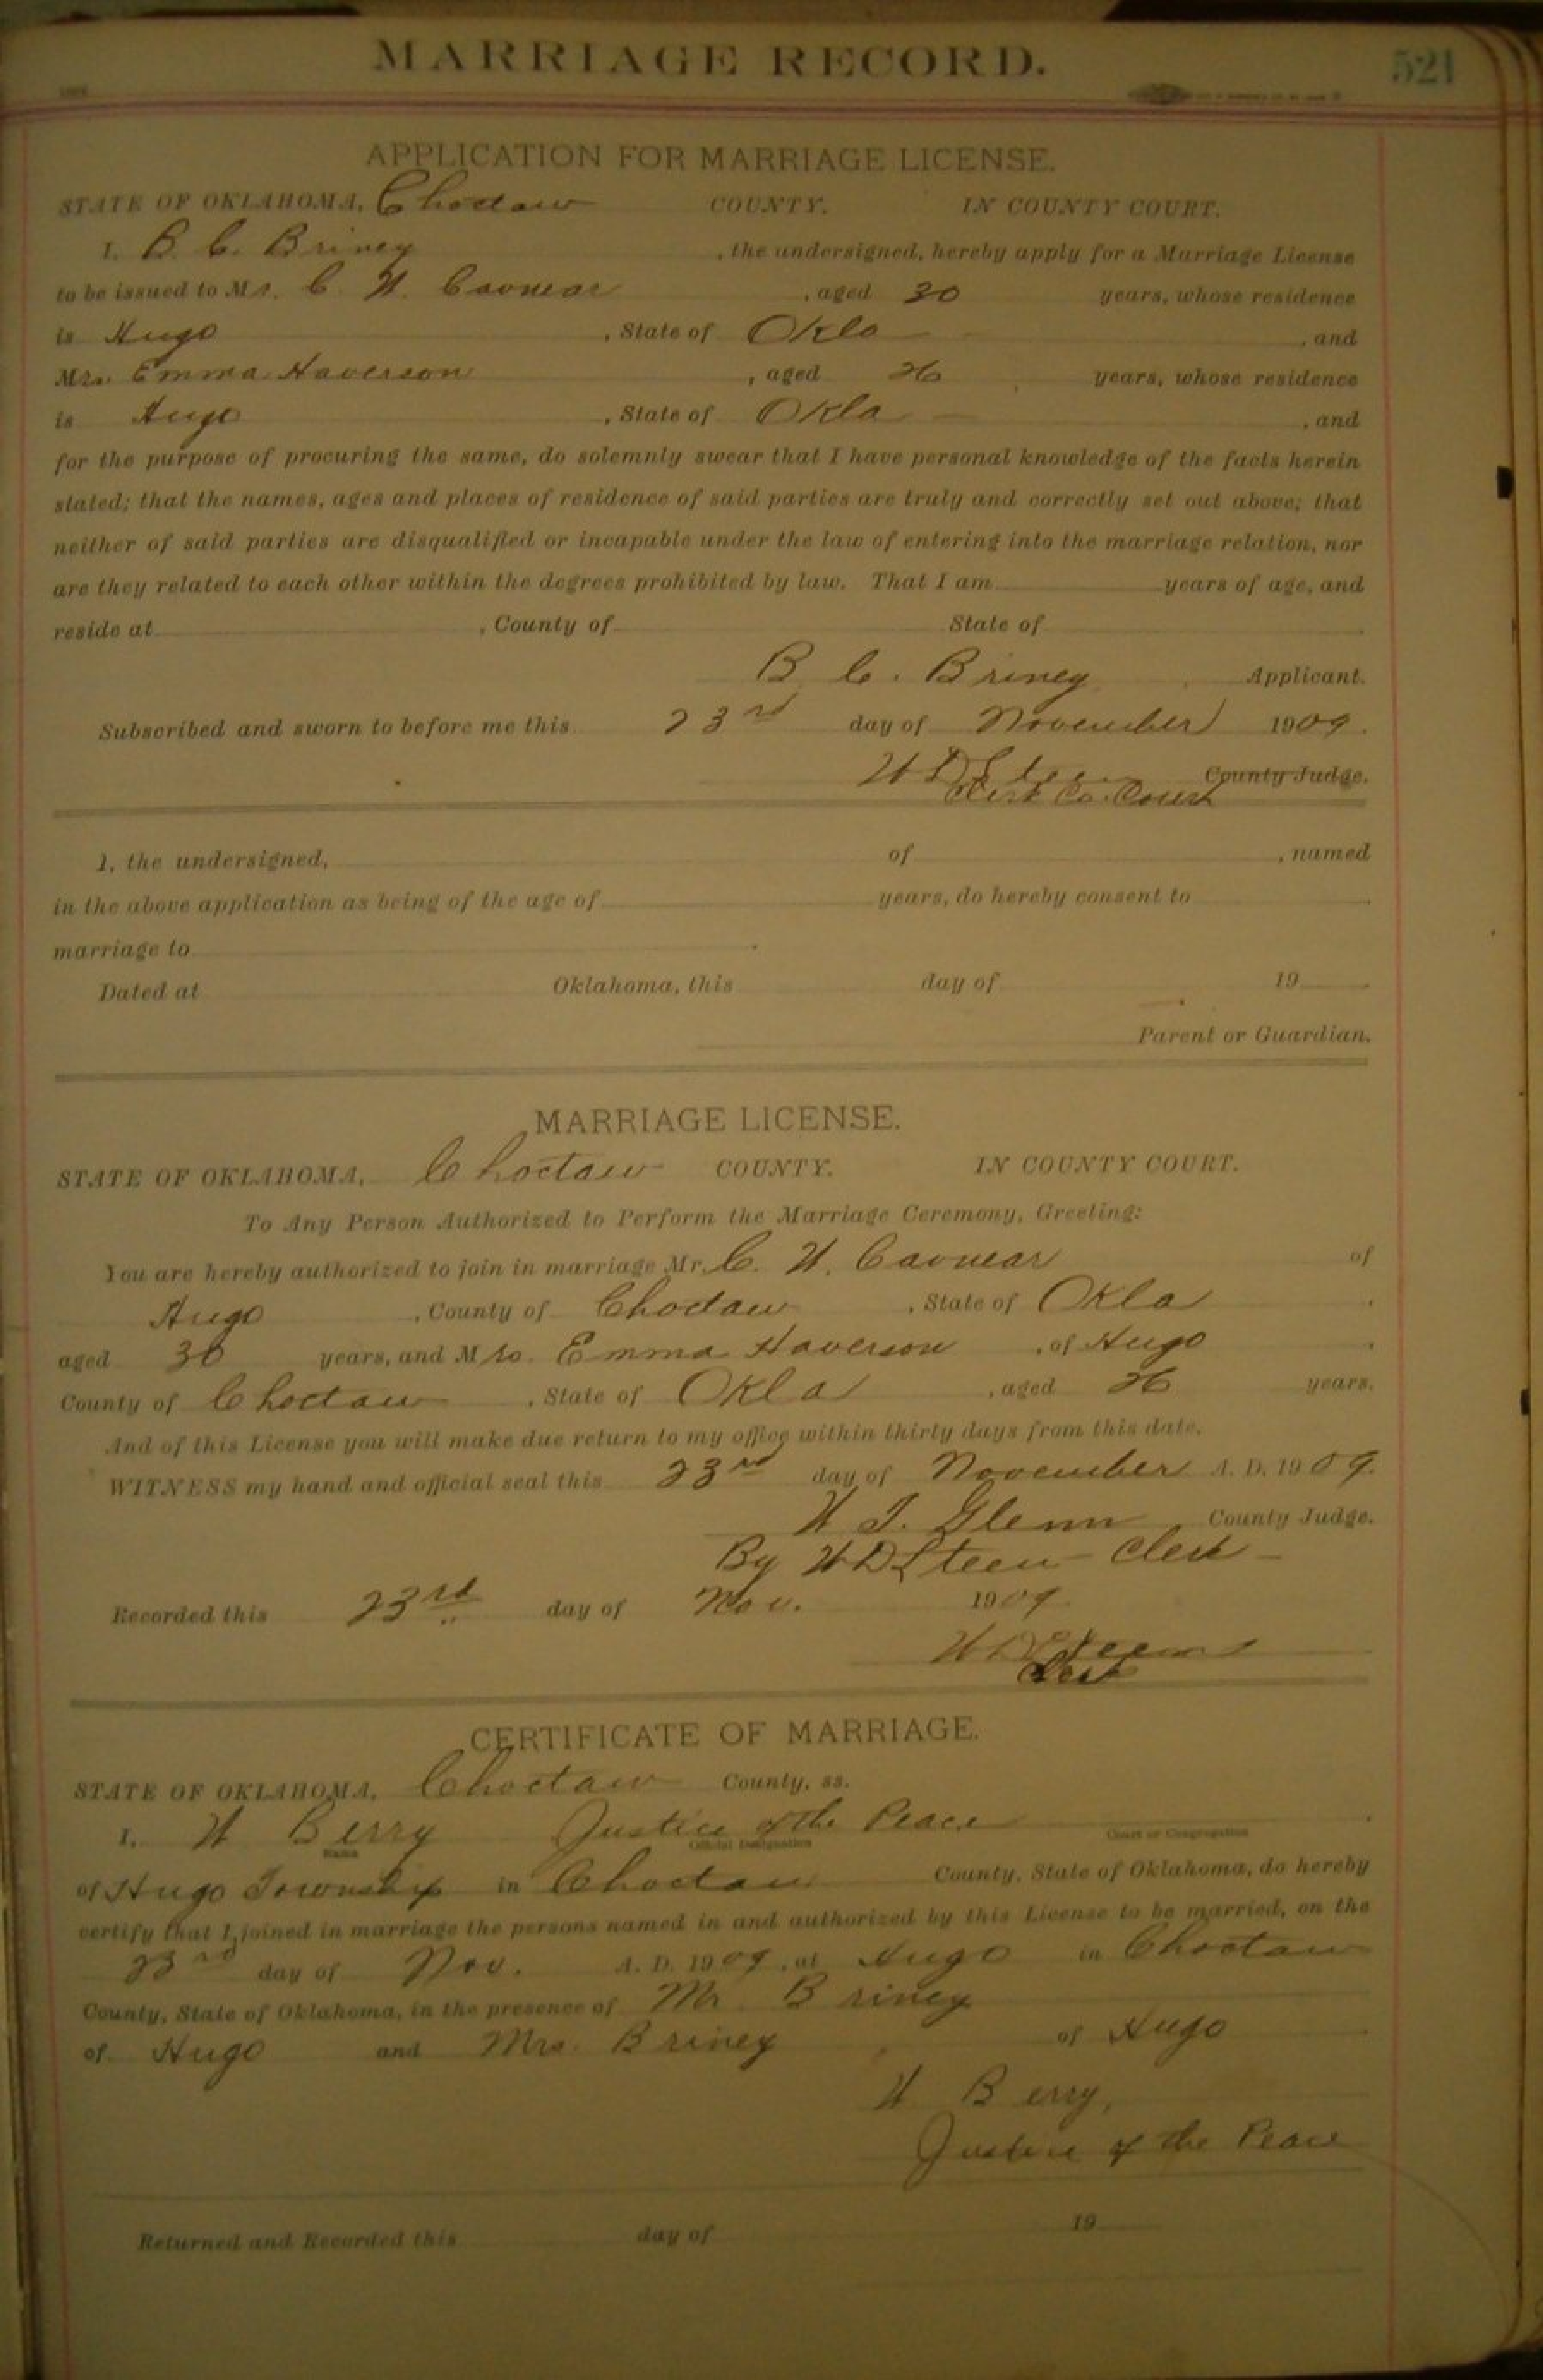 MARRIAGE RECORD. 521
APPLICATION FOR MARRIAGE LICENSE.
STATE OF OKLAHOMA, Choctaw COUNTY. IN COUNTY COURT.
I, B. C. Briney, the undersigned, hereby apply for a Marriage License
to be issued to Mr. C. H. Cavnear, aged 30 years, whose residence
is Hugo, State of Okla, and
Mrs. Emma Haverson, aged 26 years, whose residence
is Hugo, State of Okla, and
for the purpose of procuring the same, do solemnly swear that I have personal knowledge of the facts herein
stated; that the names, ages and places of residence of said parties are truly and correctly set out above; that
neither of said parties are disqualified or incapable under the law of entering into the marriage relation, nor
are they related to each other within the degrees prohibited by law. That I am years of age, and
reside at , County of State of
B C. Briney Applicant.
Subscribed and sworn to before me this 23rd day of November 1909.
W D Steen County Judge.
Clerk Co. Court
I, the undersigned, of , named
in the above application as being of the age of years, do hereby consent to
marriage to
Dated at Oklahoma, this day of 19
Parent or Guardian.
MARRIAGE LICENSE.
STATE OF OKLAHOMA, Choctaw COUNTY. IN COUNTY COURT.
To Any Person Authorized to Perform the Marriage Ceremony, Greeting:
You are hereby authorized to join in marriage Mr. C. H. Cavnear of
Hugo, County of Choctaw, State of Okla
aged 30 years, and Mrs. Emma Haverson, of Hugo
County of Choctaw, State of Okla, aged 26 years.
And of this License you will make due return to my office within thirty days from this date.
WITNESS my hand and official seal this 23rd day of November A. D. 1909.
W T. Glenn County Judge.
By W D Steen Clerk
Recorded this 23rd day of Nov. 1909
W D Steen
Clerk
CERTIFICATE OF MARRIAGE.
STATE OF OKLAHOMA, Choctaw County, ss.
I, H Berry Justice of the Peace
Name Official Designation Court or Congregation
of Hugo Township in Choctaw County, State of Oklahoma, do hereby
certify that I joined in marriage the persons named in and authorized by this License to be married, on the
23rd day of Nov. A. D. 1909, at Hugo in Choctaw
County, State of Oklahoma, in the presence of Mr Briney
of Hugo and Mrs. Briney of Hugo
H Berry,
Justice of the Peace
Returned and Recorded this day of 19